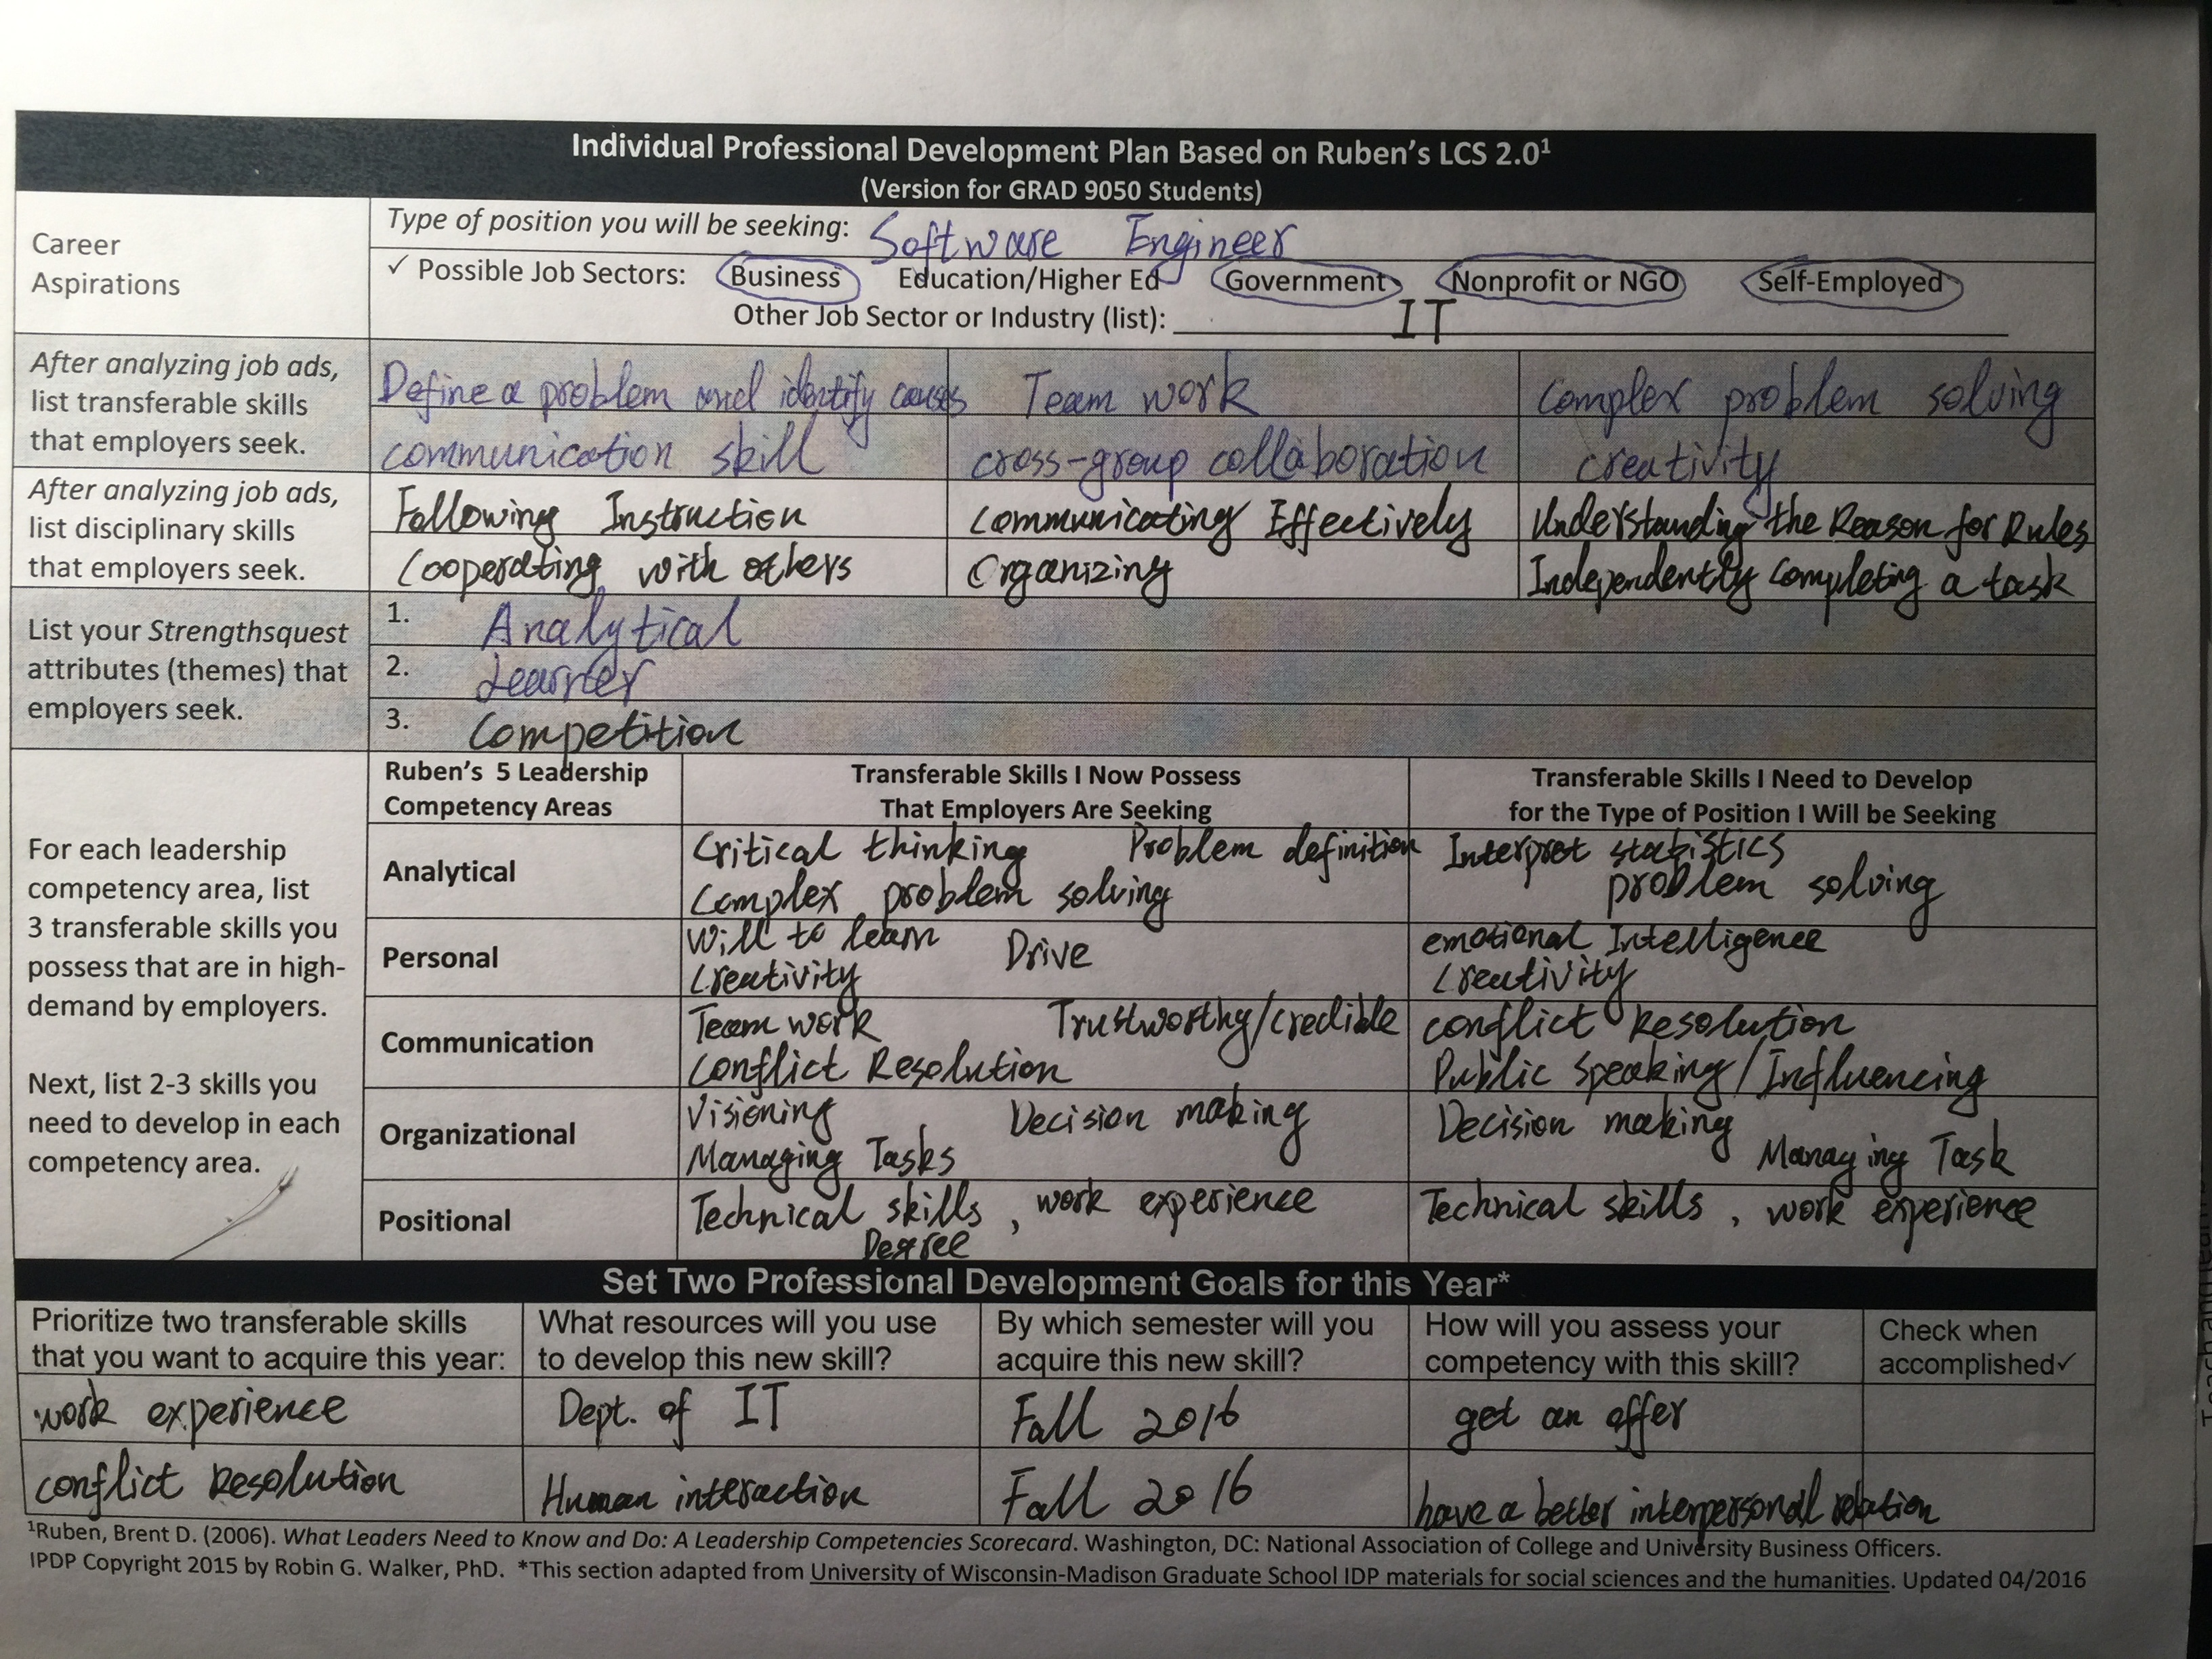 Individual Professional Development Plan Based on Ruben's LCS 2.0¹
(Version for GRAD 9050 Students)
Career
Aspirations
Type of position you will be seeking: Software Engineer
✓ Possible Job Sectors: Business Education/Higher Ed Government Nonprofit or NGO Self-Employed
Other Job Sector or Industry (list): IT
After analyzing job ads,
list transferable skills
that employers seek.
Define a problem and identify causes Team work Complex problem solving
communication skill cross-group collaboration creativity
After analyzing job ads,
list disciplinary skills
that employers seek.
Following Instruction Communicating Effectively Understanding the Reason for Rules
Cooperating with others Organizing Independently completing a task
List your Strengthsquest
attributes (themes) that
employers seek.
1. Analytical
2. Learner
3. Competition
For each leadership
competency area, list
3 transferable skills you
possess that are in high-
demand by employers.
Next, list 2-3 skills you
need to develop in each
competency area.
Ruben's 5 Leadership
Competency Areas
Transferable Skills I Now Possess
That Employers Are Seeking
Transferable Skills I Need to Develop
for the Type of Position I Will be Seeking
Analytical
Critical thinking Problem definition
Complex problem solving
Interpret statistics
problem solving
Personal
Will to learn Drive
Creativity
emotional Intelligence
Creativity
Communication
Team work Trustworthy/credible
Conflict Resolution
conflict Resolution
Public Speaking/Influencing
Organizational
Visioning Decision making
Managing Tasks
Decision making
Managing Task
Positional
Technical skills, work experience
Degree
Technical skills, work experience
Set Two Professional Development Goals for this Year*
Prioritize two transferable skills
that you want to acquire this year:
What resources will you use
to develop this new skill?
By which semester will you
acquire this new skill?
How will you assess your
competency with this skill?
Check when
accomplished✓
work experience Dept. of IT Fall 2016 get an offer
conflict Resolution Human interaction Fall 2016 have a better interpersonal relation
¹Ruben, Brent D. (2006). What Leaders Need to Know and Do: A Leadership Competencies Scorecard. Washington, DC: National Association of College and University Business Officers.
IPDP Copyright 2015 by Robin G. Walker, PhD. *This section adapted from University of Wisconsin-Madison Graduate School IDP materials for social sciences and the humanities. Updated 04/2016